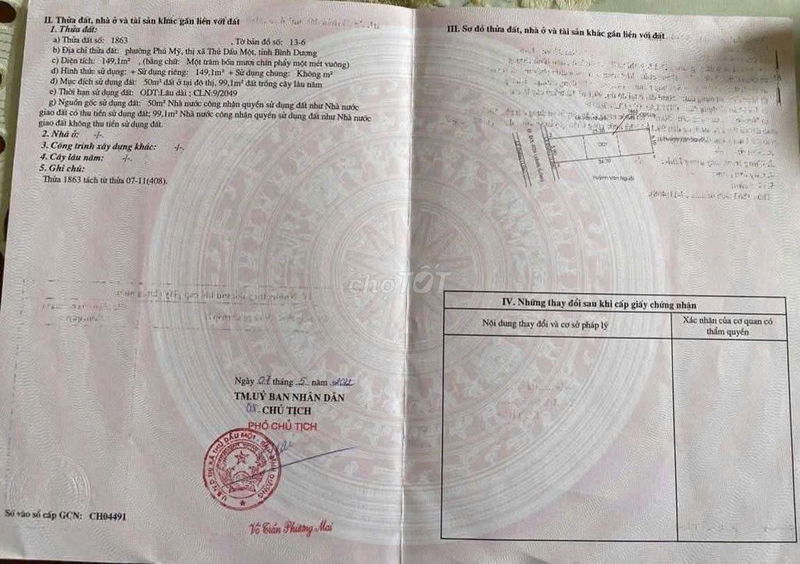 II. Thửa đất, nhà ở và tài sản khác gắn liền với đất
1. Thửa đất:
a) Thửa đất số: 1863 , Tờ bản đồ số: 13-6
b) Địa chỉ thửa đất: phường Phú Mỹ, thị xã Thủ Dầu Một, tỉnh Bình Dương
c) Diện tích: 149,1m² , (bằng chữ: Một trăm bốn mươi chín phẩy một mét vuông)
d) Hình thức sử dụng: + Sử dụng riêng: 149,1m² + Sử dụng chung: Không m²
đ) Mục đích sử dụng đất: 50m² đất ở tại đô thị, 99,1m² đất trồng cây lâu năm
e) Thời hạn sử dụng đất: ODT:Lâu dài ; CLN:9/2049
g) Nguồn gốc sử dụng đất: 50m² Nhà nước công nhận quyền sử dụng đất như Nhà nước
giao đất có thu tiền sử dụng đất; 99,1m² Nhà nước công nhận quyền sử dụng đất như Nhà nước
giao đất không thu tiền sử dụng đất.
2. Nhà ở: -/-
3. Công trình xây dựng khác: -/-
4. Cây lâu năm: -/-
5. Ghi chú:
Thửa 1863 tách từ thửa 07-11(408).
Ngày 07 tháng 5 năm
TM.UỶ BAN NHÂN DÂN
CHỦ TỊCH
PHÓ CHỦ TỊCH
U.B.N.D THỊ XÃ THỦ DẦU MỘT
Võ Trần Phương Mai
Số vào sổ cấp GCN: CH04491
III. Sơ đồ thửa đất, nhà ở và tài sản khác gắn liền với đất
Huỳnh Văn Người
IV. Những thay đổi sau khi cấp giấy chứng nhận
Nội dung thay đổi và cơ sở pháp lý
Xác nhận của cơ quan có
thẩm quyền
chợTỐT